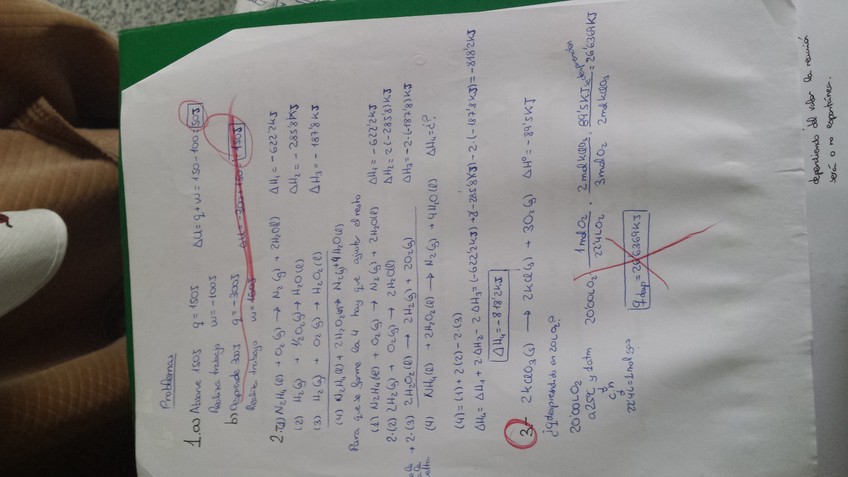 Problemas
1.a) Absorve 150J q = 150J ΔU = q + w = 150 - 100 = 50J
Realiza trabajo w = -100J
b) Desprende 300J q = -300J
Realiza trabajo
2. (1) N₂H₄(l) + O₂(g) → N₂(g) + 2H₂O(l) ΔH₁ = -622'2KJ
(2) H₂(g) + ½O₂(g) → H₂O(l) ΔH₂ = -285'8KJ
(3) H₂(g) + O₂(g) → H₂O₂(l) ΔH₃ = -187'8KJ
(4) N₂H₄(l) + 2H₂O₂(l) → N₂(g) + 4H₂O(l)
Para que se forme la 4 hay que ajustar el resto
(1) N₂H₄(l) + O₂(g) → N₂(g) + 2H₂O(l) ΔH₁ = -622'2KJ
2·(2) 2H₂(g) + O₂(g) → 2H₂O(l) ΔH₂ = 2(-285'8)KJ
+ 2·(3) 2H₂O₂(l) → 2H₂(g) + 2O₂(g) ΔH₃ = -2·(-187'8)KJ
(4) NH₄(l) + 2H₂O₂(l) → N₂(g) + 4H₂O(l) ΔH₄ = ¿?
(4) = (1) + 2(2) - 2·(3)
ΔH₄ = ΔH₁ + 2ΔH₂ - 2ΔH₃ = (-622'2KJ) + 2·(-285'8KJ) - 2·(-187'8KJ) = -818'2KJ
ΔH₄ = -818'2KJ
3.- 2KClO₃(s) → 2KCl(s) + 3O₂(g) ΔHº = -89'5KJ
¿q desprendida en 20LO₂?
20'00LO₂ 20'00LO₂ · 1molO₂ / 22'4LO₂ · 2molKClO₃ / 3molO₂ · 89'5KJ desprenden / 2molKClO₃ = 26'6369KJ
a 25ºC y 1atm
22'4L = 1mol gas
q desp = 26'6369KJ
dependiendo del valor la reacción
será o no espontánea.